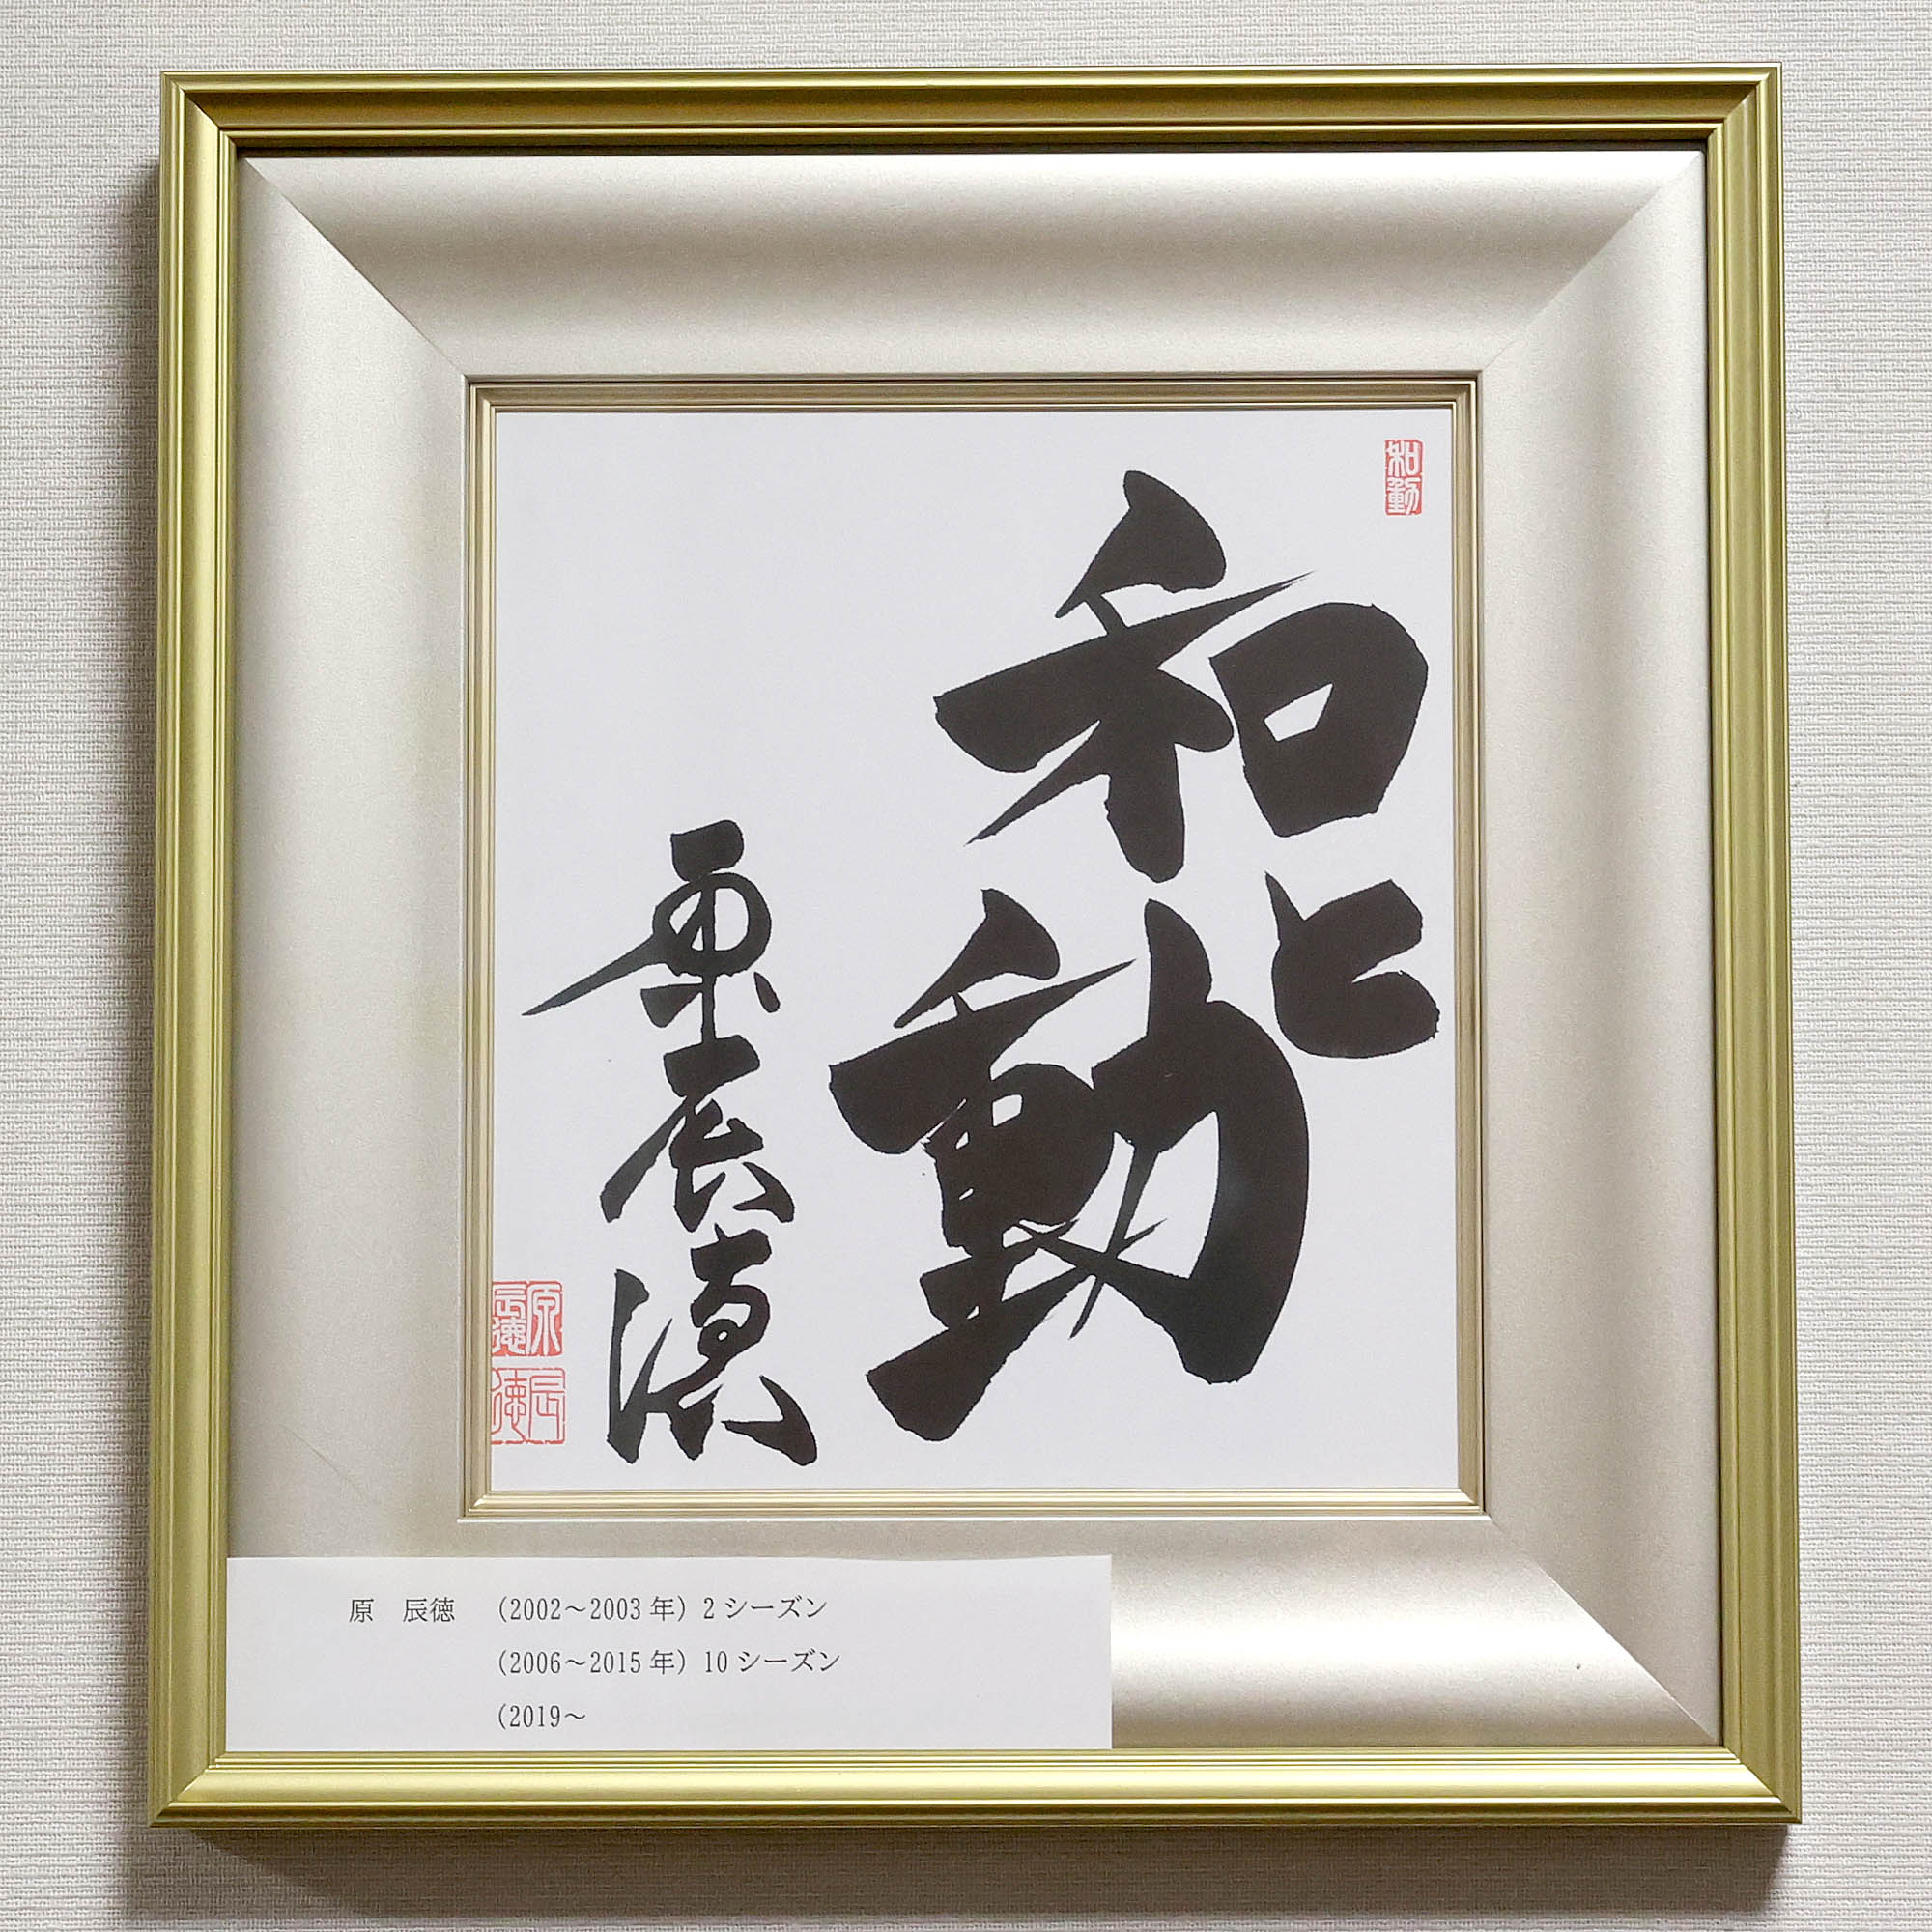 和動
和と
動
原辰徳
原辰徳
辰徳
原　辰徳　（2002～2003 年）2 シーズン
（2006～2015 年）10 シーズン
（2019～